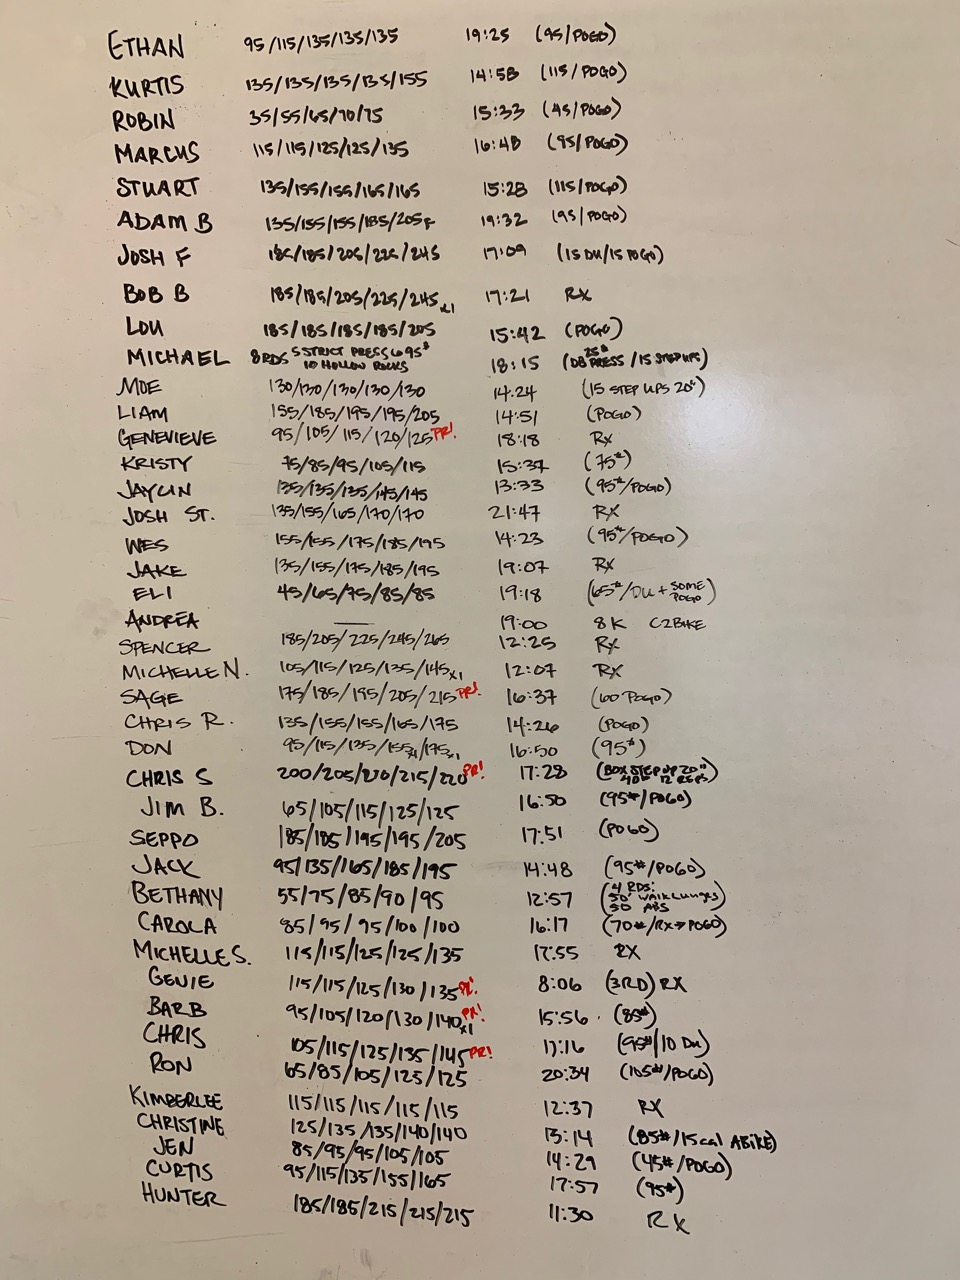 ETHAN 95/115/135/135/135 19:25 (95/POGO)
KURTIS 135/135/135/135/155 14:58 (115/POGO)
ROBIN 35/55/65/70/75 15:33 (45/POGO)
MARCUS 115/115/125/125/135 16:48 (95/POGO)
STUART 135/155/155/165/165 15:28 (115/POGO)
ADAM B 135/155/155/185/205F 19:32 (95/POGO)
JOSH F 185/185/205/225/245 17:09 (15 DU/15 POGO)
BOB B 185/185/205/225/245x1 17:21 RX
LOU 185/185/185/185/205 15:42 (POGO)
MICHAEL 8RDS 5 STRICT PRESS @ 95# 10 HOLLOW ROCKS 18:15 (DB 25# PRESS/15 STEP UPS)
MOE 130/130/130/130/130 14:24 (15 STEP UPS 20")
LIAM 155/185/195/195/205 14:51 (POGO)
GENEVIEVE 95/105/115/120/125 PR! 18:18 RX
KRISTY 75/85/95/105/115 15:37 (75#)
JAYLIN 135/135/135/145/145 13:33 (95#/POGO)
JOSH ST. 135/155/165/170/170 21:47 RX
WES 155/155/175/185/195 14:23 (95#/POGO)
JAKE 135/155/175/185/195 19:07 RX
ELI 45/65/75/85/85 19:18 (65#/DU + SOME POGO)
ANDREA — 19:00 8K C2BIKE
SPENCER 185/205/225/245/265 12:25 RX
MICHELLE N. 105/115/125/135/145x1 12:07 RX
SAGE 175/185/195/205/215 PR! 16:37 (60 POGO)
CHRIS R. 135/155/155/165/175 14:26 (POGO)
DON 95/115/135/155x1/175x1 16:50 (95#)
CHRIS S 200/205/210/215/220 PR! 17:28 (BOX STEP UP 20" 12 REPS)
JIM B. 65/105/115/125/125 16:50 (95#/POGO)
SEPPO 185/185/195/195/205 17:51 (POGO)
JACK 95/135/165/185/195 14:48 (95#/POGO)
BETHANY 55/75/85/90/95 12:57 (4 RDS: 50' WALK Lunges 50 ABS)
CAROLA 85/95/95/100/100 16:17 (70#/RX→POGO)
MICHELLE S. 115/115/125/125/135 17:55 RX
GENIE 115/115/125/130/135 PR! 8:06 (3RD) RX
BARB 95/105/120/130/140x1 PR! 15:56 (85#)
CHRIS 105/115/125/135/145 PR! 17:16 (95#/10 DU)
RON 65/85/105/125/125 20:34 (105#/POGO)
KIMBERLEE 115/115/115/115/115 12:37 RX
CHRISTINE 125/135/135/140/140 13:14 (85#/15 cal ABIKE)
JEN 85/95/95/105/105 14:29 (45#/POGO)
CURTIS 95/115/135/155/165 17:57 (95#)
HUNTER 185/185/215/215/215 11:30 RX